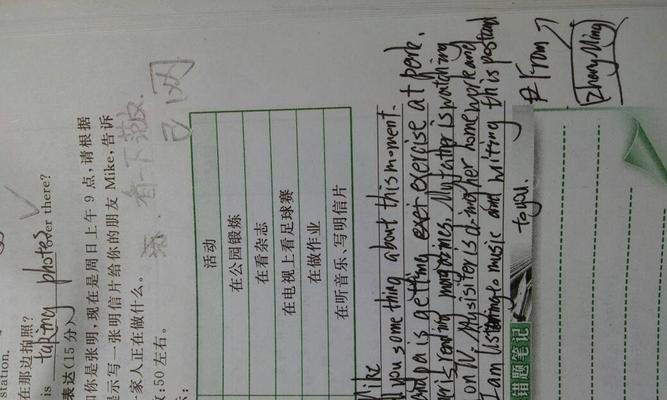 station,
在那边拍照?
is taking photos over there?
表达(15分)
如你是张明,现在是周日上午9点,请根据
示写一张明信片给你的朋友Mike,告诉
家人正在做什么。
:50左右。
看一下范文.
活动
在公园锻炼
在看杂志
在电视上看足球赛
在做作业
在听音乐、写明信片
Mike
you something about this moment.
is getting exercise at park.
is reading magazines. My father is watching
on TV. My sister is doing her homework and
I am listening to music and writing this postcard
to you.
错题笔记
From
Zhang Ming